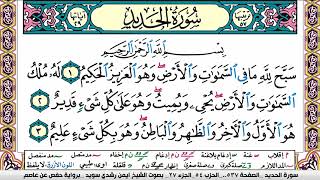 سُورَةُ الحَدِيدِ
بِسْمِ اللَّهِ الرَّحْمَٰنِ الرَّحِيمِ
سَبَّحَ لِلَّهِ مَا فِي ٱلسَّمَٰوَٰتِ وَٱلْأَرْضِ وَهُوَ ٱلْعَزِيزُ ٱلْحَكِيمُ ١ لَهُۥ مُلْكُ
ٱلسَّمَٰوَٰتِ وَٱلْأَرْضِ يُحْيِۦ وَيُمِيتُ وَهُوَ عَلَىٰ كُلِّ شَىْءٍ قَدِيرٌ ٢
هُوَ ٱلْأَوَّلُ وَٱلْأَخِرُ وَٱلظَّٰهِرُ وَٱلْبَاطِنُ وَهُوَ بِكُلِّ شَىْءٍ عَلِيمٌ ٣
سورة الحديد الصفحة ٥٣٧ الجزء ٢٧ بصوت الشيخ ايمن رشدي سويد برواية حفص عن عاصم